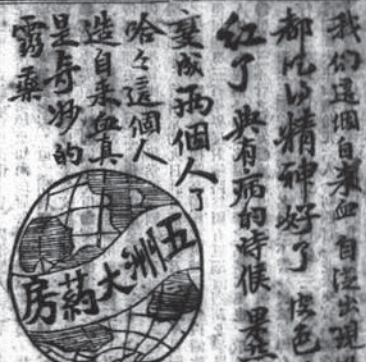 我们這個自來血 自從出現
都吃得精神好了 色
红了 與有病的時候
變成两個人了
哈々這個人
造自来血真
是奇妙的
靈藥
五洲大药房